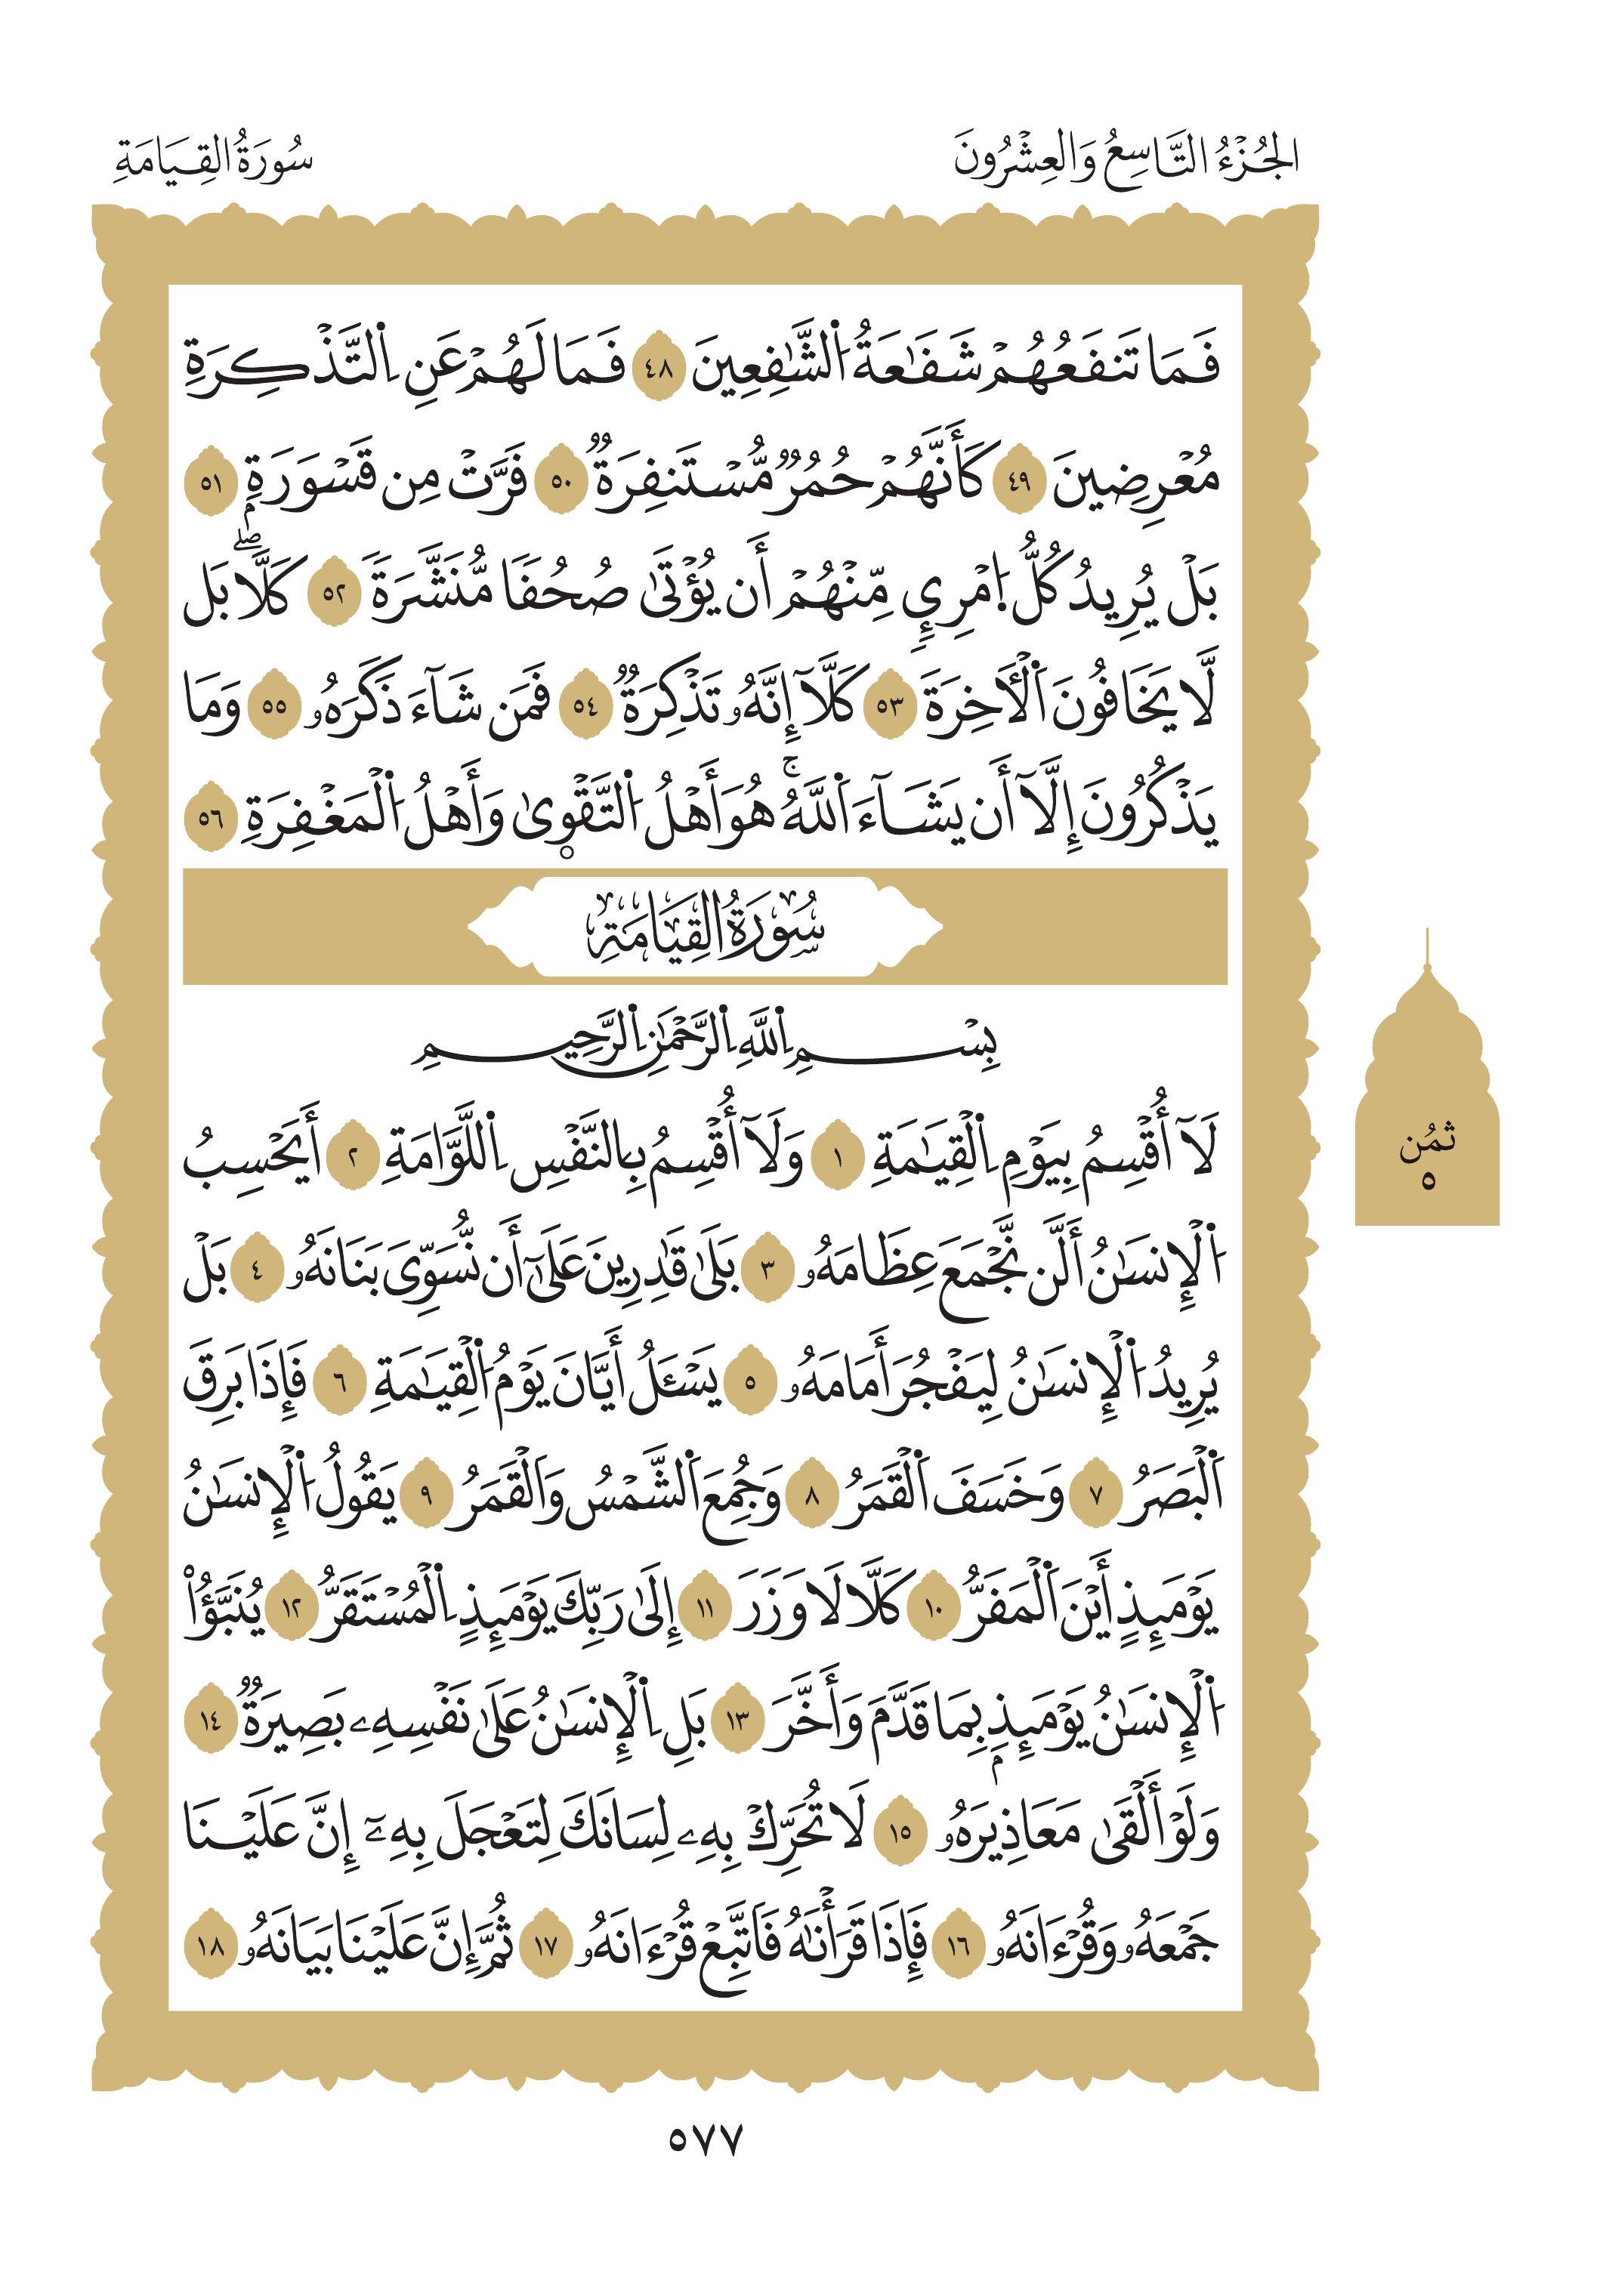 الجُزْءُ التَّاسِعُ وَالعِشْرُونَ
سُورَةُ القِيَامَةِ
فَمَا تَنفَعُهُمْ شَفَٰعَةُ اُ۬لشَّٰفِعِينَ ٤٨ فَمَا لَهُمْ عَنِ اِ۬لتَّذْكِرَةِ
مُعْرِضِينَ ٤٩ كَأَنَّهُمْ حُمُرٌ مُّسْتَنفِرَةٌ ٥٠ فَرَّتْ مِن قَسْوَرَةِۭ ٥١
بَلْ يُرِيدُ كُلُّ اُ۪مْرِيٕٖ مِّنْهُمْ أَن يُؤْتَىٰ صُحُفًا مُّنَشَّرَةً ٥٢ كَلَّاۖ بَل
لَّا يَخَافُونَ اَ۬لْأٓخِرَةَ ٥٣ كَلَّآ إِنَّهُۥ تَذْكِرَةٌ ٥٤ فَمَن شَآءَ ذَكَرَهُۥ ٥٥ وَمَا
يَذْكُرُونَ إِلَّآ أَن يَشَآءَ اَ۬للَّهُۚ هُوَ أَهْلُ اُ۬لتَّقْوٜىٰ وَأَهْلُ اُ۬لْمَغْفِرَةِ ٥٦
سُورَةُ القِيَامَةِ
بِسْمِ اِ۬للَّهِ اِ۬لرَّحْمَٰنِ اِ۬لرَّحِيمِ
لَآ أُقْسِمُ بِيَوْمِ اِ۬لْقِيَٰمَةِ ١ وَلَآ أُقْسِمُ بِالنَّفْسِ اِ۬للَّوَّامَةِ ٢ أَيَحْسِبُ
اُ۬لْإِنسَٰنُ أَلَّن نَّجْمَعَ عِظَامَهُۥ ٣ بَلَىٰ قَٰدِرِينَ عَلَىٰٓ أَن نُّسَوِّيَ بَنَانَهُۥ ٤ بَلْ
يُرِيدُ اُ۬لْإِنسَٰنُ لِيَفْجُرَ أَمَامَهُۥ ٥ يَسْـَٔلُ أَيَّانَ يَوْمُ اُ۬لْقِيَٰمَةِ ٦ فَإِذَا بَرِقَ
اَ۬لْبَصَرُ ٧ وَخَسَفَ اَ۬لْقَمَرُ ٨ وَجُمِعَ اَ۬لشَّمْسُ وَالْقَمَرُ ٩ يَقُولُ اُ۬لْإِنسَٰنُ
يَوْمَئِذٍ أَيْنَ اَ۬لْمَفَرُّ ١٠ كَلَّا لَا وَزَرَ ١١ إِلَىٰ رَبِّكَ يَوْمَئِذٍ اِ۬لْمُسْتَقَرُّ ١٢ يُنَبَّؤُاْ
اُ۬لْإِنسَٰنُ يَوْمَئِذِۭ بِمَا قَدَّمَ وَأَخَّرَ ١٣ بَلِ اِ۬لْإِنسَٰنُ عَلَىٰ نَفْسِهِۦ بَصِيرَةٌ ١٤
وَلَوْ أَلْقَىٰ مَعَاذِيرَهُۥ ١٥ لَا تُحَرِّكْ بِهِۦ لِسَانَكَ لِتَعْجَلَ بِهِۦٓ إِنَّ عَلَيْنَا
جَمْعَهُۥ وَقُرْءَانَهُۥ ١٦ فَإِذَا قَرَأْنَٰهُ فَاتَّبِعْ قُرْءَانَهُۥ ١٧ ثُمَّ إِنَّ عَلَيْنَا بَيَانَهُۥ ١٨
ثمُن
٥
٥٧٧